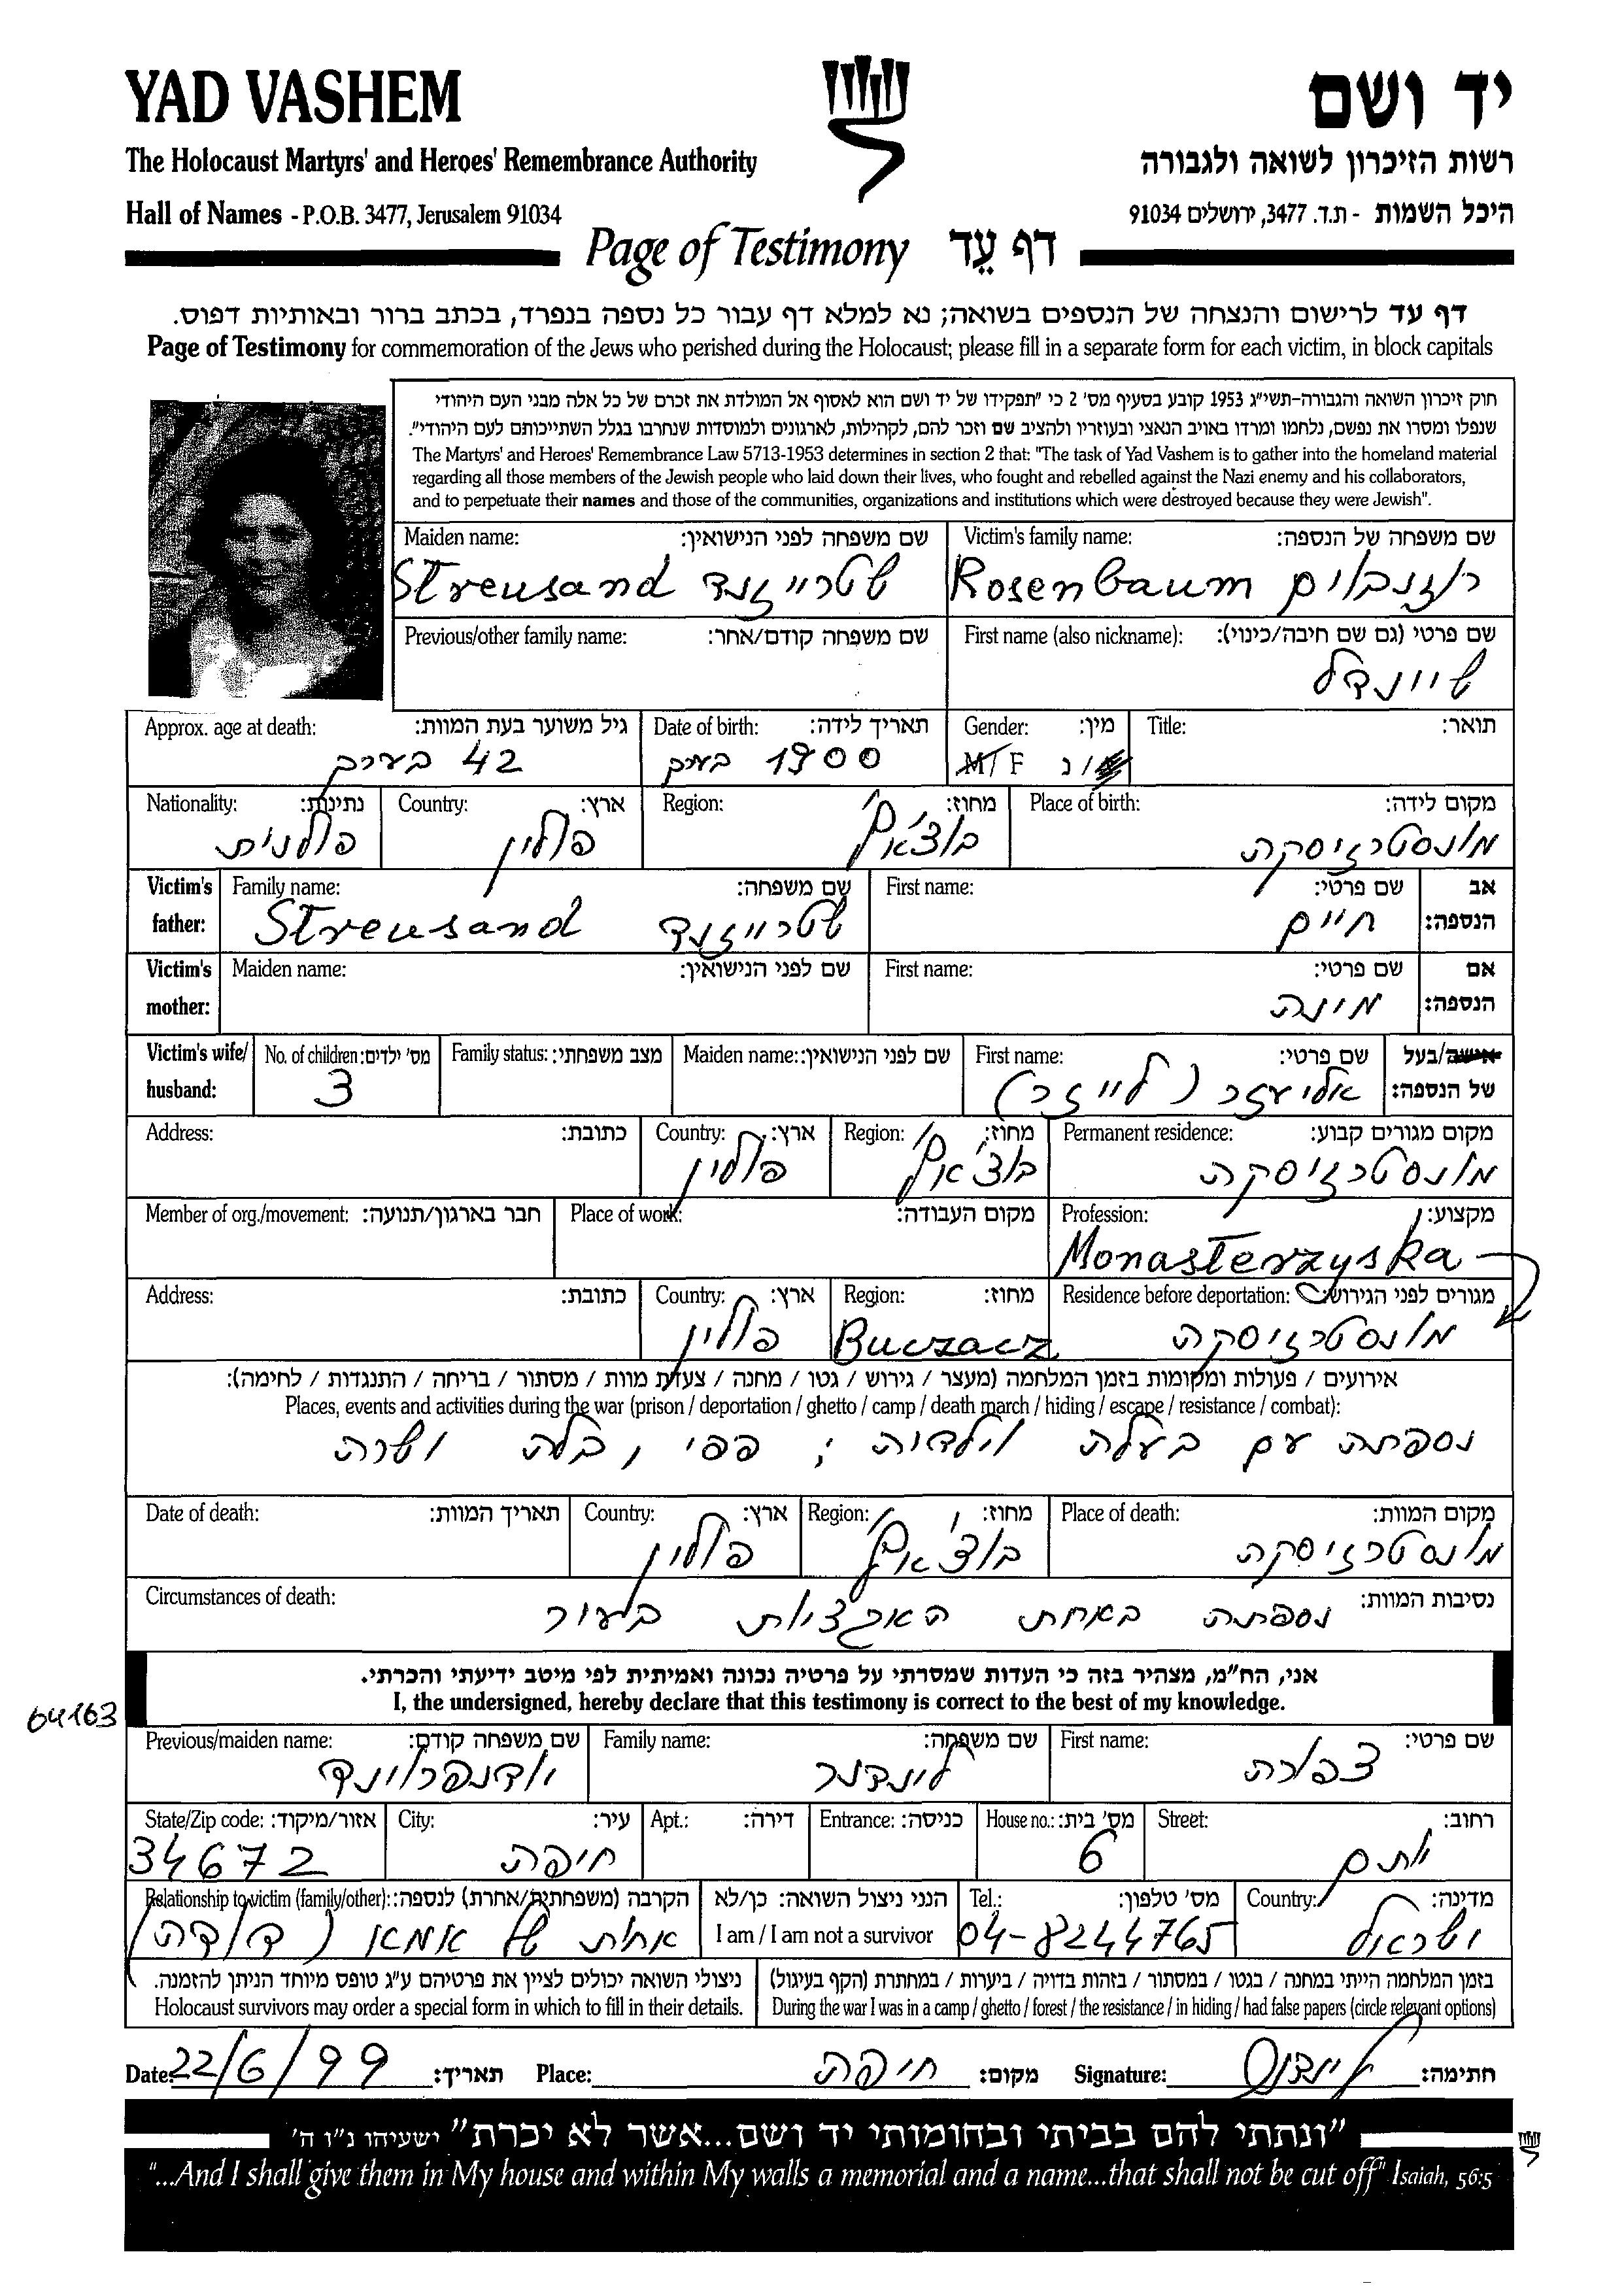 YAD VASHEM
יד ושם
The Holocaust Martyrs' and Heroes' Remembrance Authority
רשות הזיכרון לשואה ולגבורה
Hall of Names - P.O.B. 3477, Jerusalem 91034
היכל השמות - ת.ד. 3477, ירושלים 91034
Page of Testimony דף עֵד
דף עד לרישום והנצחה של הנספים בשואה; נא למלא דף עבור כל נספה בנפרד, בכתב ברור ובאותיות דפוס.
Page of Testimony for commemoration of the Jews who perished during the Holocaust; please fill in a separate form for each victim, in block capitals
חוק זיכרון השואה והגבורה-תשי"ג 1953 קובע בסעיף מס' 2 כי "תפקידו של יד ושם הוא לאסוף אל המולדת את זכרם של כל אלה מבני העם היהודי
שנפלו ומסרו את נפשם, נלחמו ומרדו באויב הנאצי ובעוזריו ולהציב שם וזכר להם, לקהילות, לארגונים ולמוסדות שנחרבו בגלל השתייכותם לעם היהודי".
The Martyrs' and Heroes' Remembrance Law 5713-1953 determines in section 2 that: "The task of Yad Vashem is to gather into the homeland material
regarding all those members of the Jewish people who laid down their lives, who fought and rebelled against the Nazi enemy and his collaborators,
and to perpetuate their names and those of the communities, organizations and institutions which were destroyed because they were Jewish".
Victim's family name: שם משפחה של הנספה:
Rosenbaum רוזנבוים
Maiden name: שם משפחה לפני הנישואין:
Streusand שטרייזנד
First name (also nickname): שם פרטי (גם שם חיבה/כינוי):
שיינדל
Previous/other family name: שם משפחה קודם/אחר:
Title: תואר:
Gender: מין:
M/F ז/נ
Date of birth: תאריך לידה:
1900 בערך
Approx. age at death: גיל משוער בעת המוות:
42 בערך
Place of birth: מקום לידה:
מונסטרזיסקה
Region: מחוז:
בוצ'אץ'
Country: ארץ:
פולין
Nationality: נתינות:
פולנית
Victim's father: אב הנספה:
First name: שם פרטי:
חיים
Family name: שם משפחה:
Streusand שטרייזנד
Victim's mother: אם הנספה:
First name: שם פרטי:
מינה
Maiden name: שם לפני הנישואין:
Victim's wife/ husband: אישה/בעל של הנספה:
First name: שם פרטי:
אליעזר (לייזר)
Maiden name: שם לפני הנישואין:
Family status: מצב משפחתי:
No. of children: מס' ילדים:
3
Permanent residence: מקום מגורים קבוע:
מונסטרזיסקה
Region: מחוז:
בוצ'אץ'
Country: ארץ:
פולין
Address: כתובת:
Profession: מקצוע:
Monasterzyska
Place of work: מקום העבודה:
Member of org./movement: חבר בארגון/תנועה:
Residence before deportation: מגורים לפני הגירוש:
מונסטרזיסקה
Region: מחוז:
Buczacz
Country: ארץ:
פולין
Address: כתובת:
אירועים / פעולות ומקומות בזמן המלחמה (מעצר / גירוש / גטו / מחנה / צעדת מוות / מסתור / בריחה / התנגדות / לחימה):
Places, events and activities during the war (prison / deportation / ghetto / camp / death march / hiding / escape / resistance / combat):
נספתה עם בעלה וילדיה ; פפי , בלה ושרה
Place of death: מקום המוות:
מונסטרזיסקה
Region: מחוז:
בוצ'אץ'
Country: ארץ:
פולין
Date of death: תאריך המוות:
Circumstances of death: נסיבות המוות:
נספתה באחת האקציות בעיר
אני, הח"מ, מצהיר בזה כי העדות שמסרתי על פרטיה נכונה ואמיתית לפי מיטב ידיעתי והכרתי.
I, the undersigned, hereby declare that this testimony is correct to the best of my knowledge.
64163
First name: שם פרטי:
צפורה
Family name: שם משפחה:
לינדנר
Previous/maiden name: שם משפחה קודם:
Street: רחוב:
יותם
House no.: מס' בית:
6
Entrance: כניסה:
Apt.: דירה:
City: עיר:
חיפה
State/Zip code: אזור/מיקוד:
34672
Country: מדינה:
ישראל
Tel.: מס' טלפון:
04-8244765
הנני ניצול השואה: כן/לא
I am / I am not a survivor
Relationship to victim (family/other): הקרבה (משפחתית/אחרת) לנספה:
אחות של אמא (דודה)
בזמן המלחמה הייתי במחנה / בגטו / במסתור / בזהות בדויה / ביערות / במחתרת (הקף בעיגול)
During the war I was in a camp / ghetto / forest / the resistance / in hiding / had false papers (circle relevant options)
ניצולי השואה יכולים לציין את פרטיהם ע"ג טופס מיוחד הניתן להזמנה.
Holocaust survivors may order a special form in which to fill in their details.
Date: 22/6/99 תאריך: Place: חיפה מקום: Signature: חתימה:
"ונתתי להם בביתי ובחומותי יד ושם...אשר לא יכרת" ישעיהו נ"ו ה'
"...And I shall give them in My house and within My walls a memorial and a name...that shall not be cut off" Isaiah, 56:5